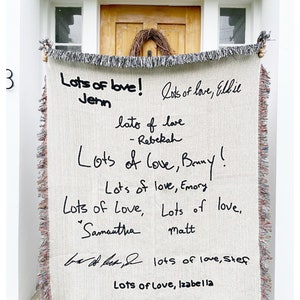 Lots of love!
Jenn
Lots of love, Eddie
lots of love
-Rebekah
Lots of Love, Bonny!
Lots of love, Emory
Lots of Love,
Samantha
Lots of love,
Matt
lots of love, Stef
Lots of Love, Izabella
3